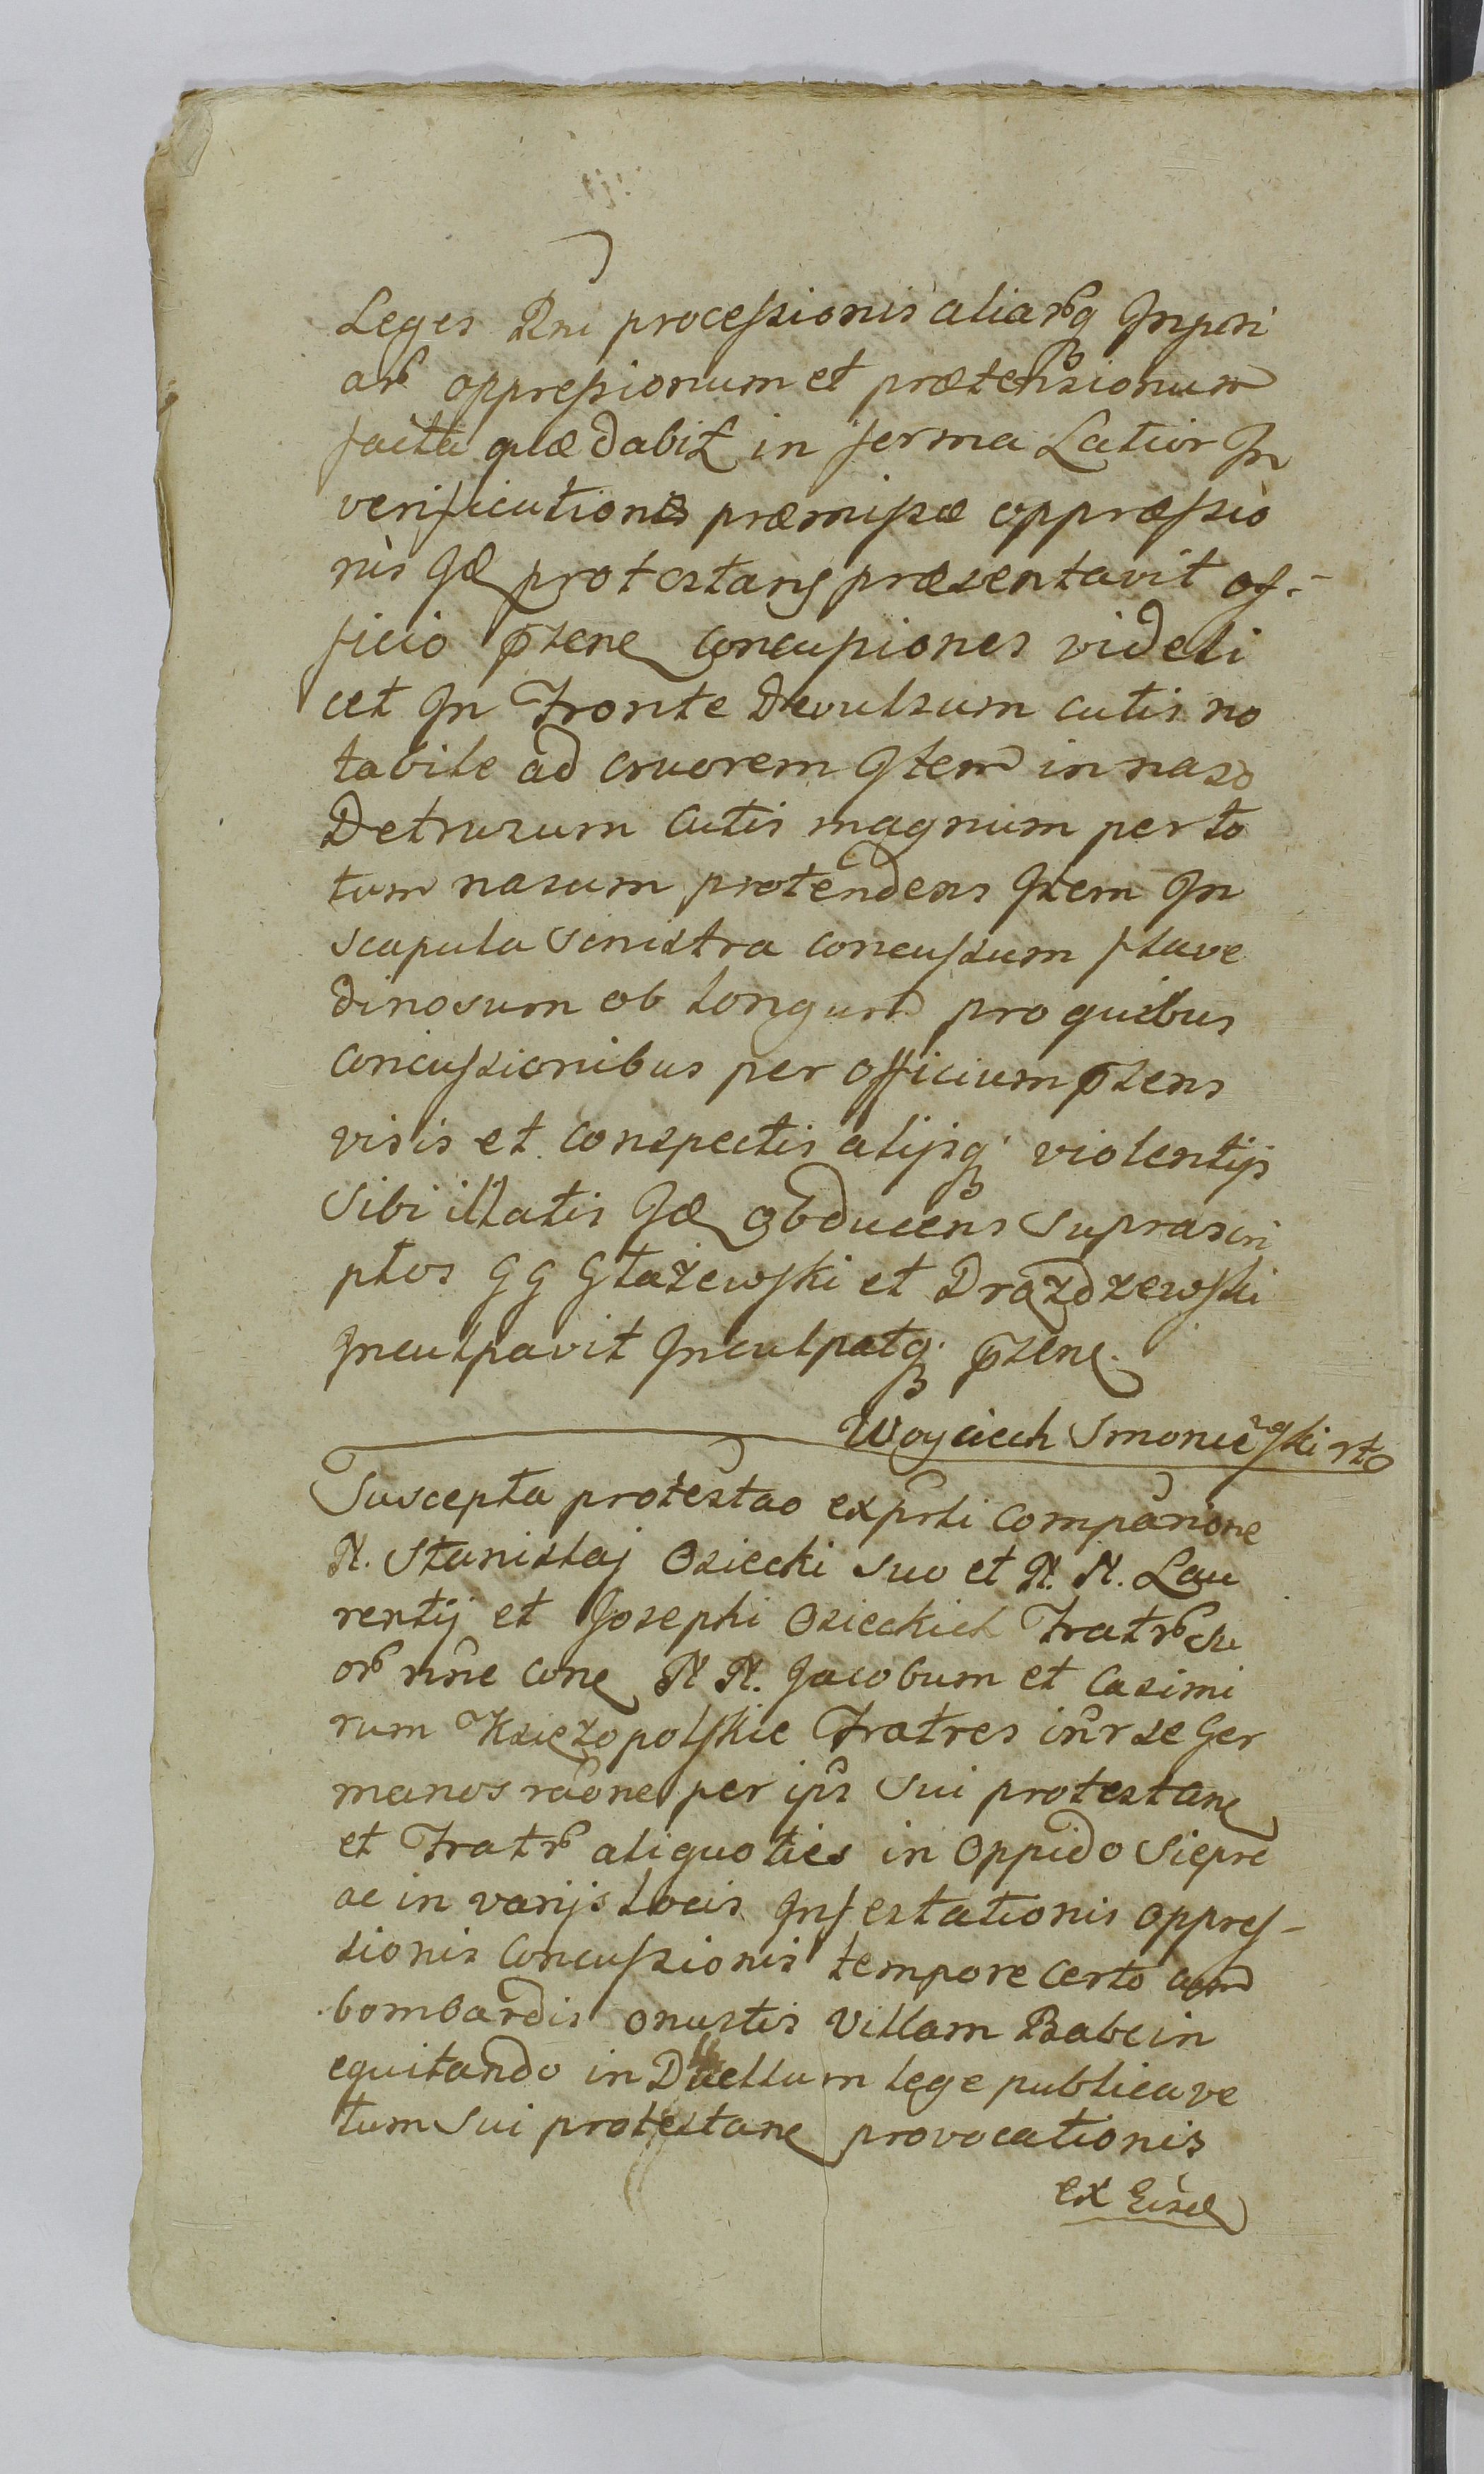 Leges Rni processionis aliarbq Injuri
arb oppressionum et prætensionum
facta quæ dabit in forma Latior In
verificationis præmissæ oppræssio
nis Id protestans præsentavit of-
ficio pstene concussiones videli
cet In Fronte Devulsum cutis no
tabile ad cruorem Item in naso
Detrusum cutis magnum per to
tum nasum protendens Item In
scapula sinistra concussum flave
dinosum ob longum pro quibus
concussionibus per officium psens
visis et conspectis alijsq violentijs
sibi illatis Id obducens suprascri
ptos GG Głażewski et Drązdzewski
Inculpavit Inculpatq psene.
Woyciech Smoniewski rto
Suscepta protestao exprti comparione
N. Stanislaj Osiecki suo et N. N. Lau
rentij et Josephi Osieckich Fratrb su
orb nne cone N N. Jacobum et Casimi
rum Księżopolskie Fratres intr se Ger
manos raone per ips sui protestane
et Fratrb aliquoties in Oppido Siepre
ac in varijs locis Infestationis oppres-
sionis concussionis tempore certo cum
bombardis onustis Villam Babein
equitando in Duellum lege publica ve
tum sui protestane provocationis
ex Eisd